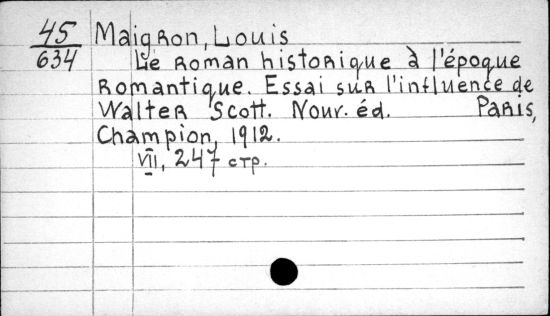 45 Maigron, Louis
634 Le Roman historique à l'époque
Romantique. Essai sur l'influence de
Walter Scott. Nouv. éd. Paris,
Champion, 1912.
VII, 247 стр.